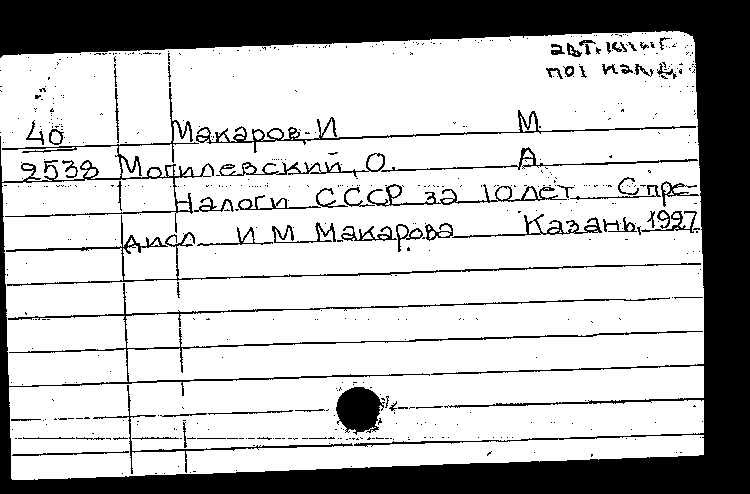 авт. книг.
40 Макаров, И М
2538 Могилевский, О. А.
Налоги СССР за 10 лет. С пре-
дисл. И М Макарова Казань, 1927